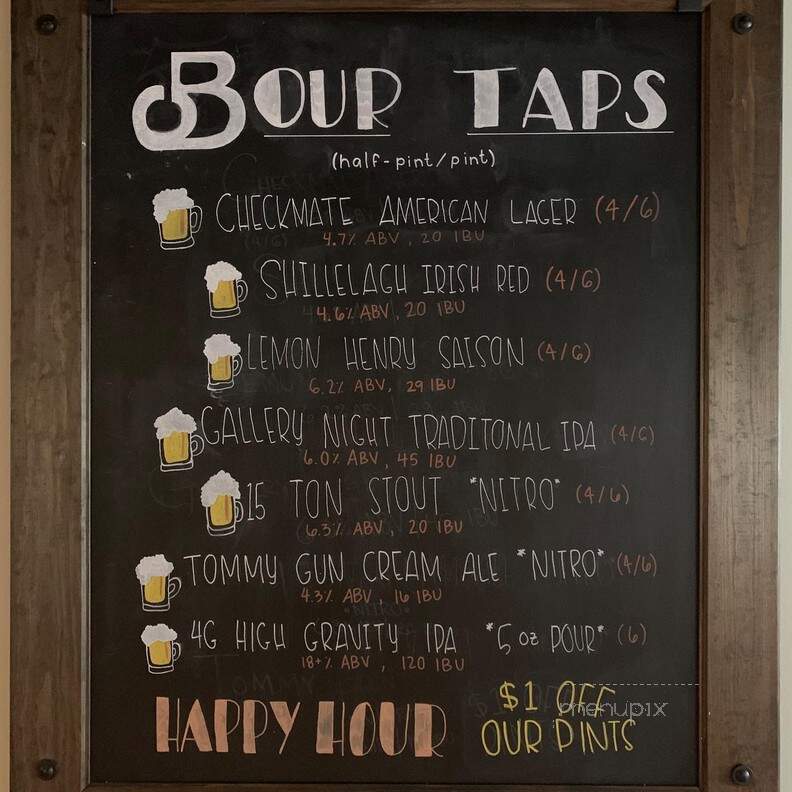 BOUR TAPS
(half-pint/pint)
CHECKMATE AMERICAN LAGER (4/6)
4.7% ABV, 20 IBU
SHILLELAGH IRISH RED (4/6)
4.6% ABV, 20 IBU
LEMON HENRY SAISON (4/6)
6.2% ABV, 29 IBU
GALLERY NIGHT TRADITONAL IPA (4/6)
6.0% ABV, 45 IBU
15 TON STOUT *NITRO* (4/6)
6.3% ABV, 20 IBU
TOMMY GUN CREAM ALE *NITRO* (4/6)
4.3% ABV, 16 IBU
4G HIGH GRAVITY IPA *5 oz POUR* (6)
18+% ABV, 120 IBU
HAPPY HOUR
$1 OFF
menupix
OUR PINTS